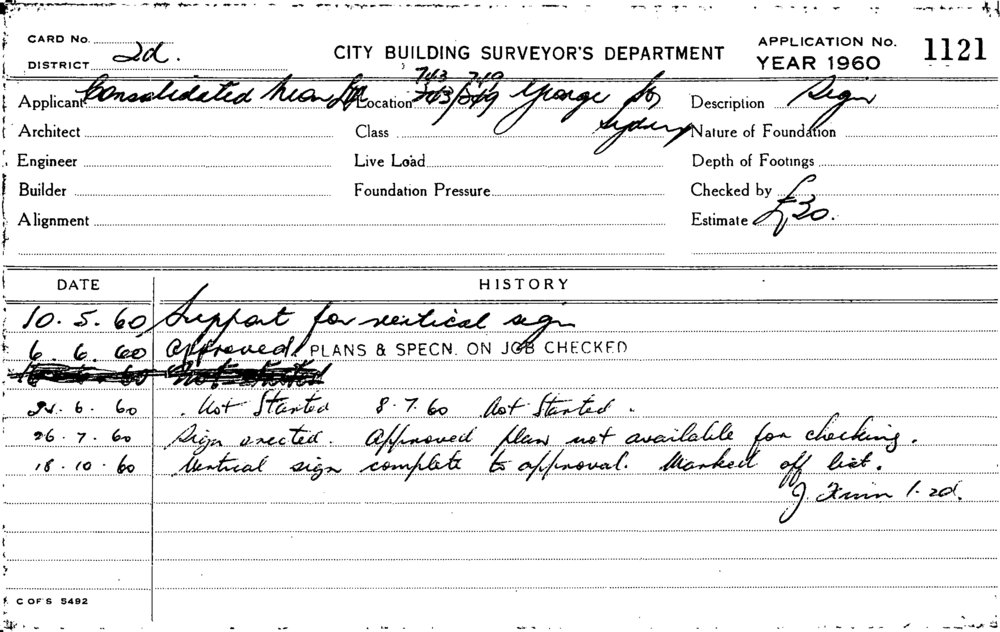 CARD No.
DISTRICT 2d.
CITY BUILDING SURVEYOR'S DEPARTMENT
APPLICATION No. 1121
YEAR 1960
743 749
Applicant Consolidated Neon Location George St Description Sign
Architect Class Sydney Nature of Foundation
Engineer Live Load Depth of Footings
Builder Foundation Pressure Checked by
Alignment Estimate £30.
DATE HISTORY
10.5.60 Support for vertical sign
6.6.60 Approved PLANS & SPECN. ON JOB CHECKED
24.6.60 Not Started 8.7.60 Not Started.
26.7.60 Sign erected. Approved plan not available for checking.
18.10.60 Vertical sign complete to approval. Marked off list.
J. 1.2d.
C OF S 5492